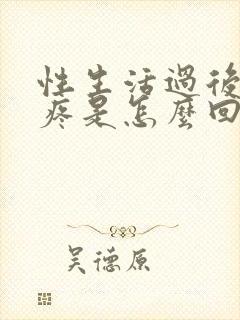 性生活過後
疼是怎麼回
吴德原